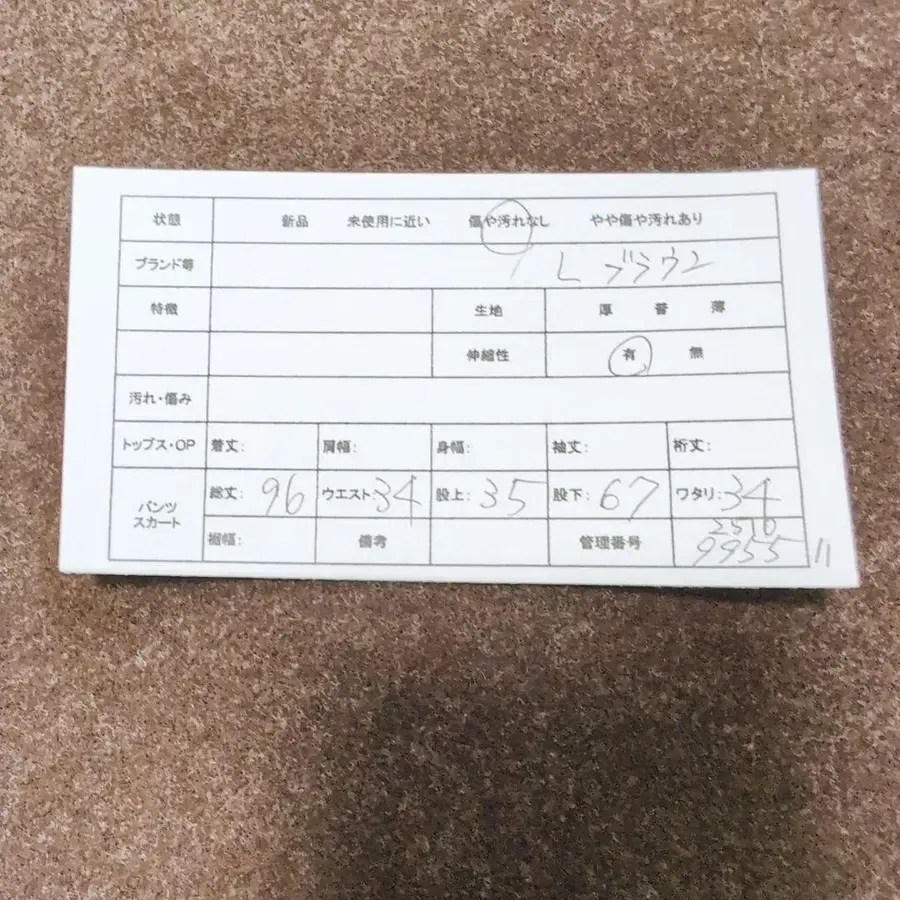 状態 新品 未使用に近い 傷や汚れなし やや傷や汚れあり
ブランド等 L ブラウン
特徴 生地 厚 普 薄
伸縮性 有 無
汚れ・傷み
トップス・OP 着丈: 肩幅: 身幅: 袖丈: 裄丈:
パンツ スカート 総丈: 96 ウエスト: 34 股上: 35 股下: 67 ワタリ: 34
裾幅: 備考 管理番号 2510
9955 11